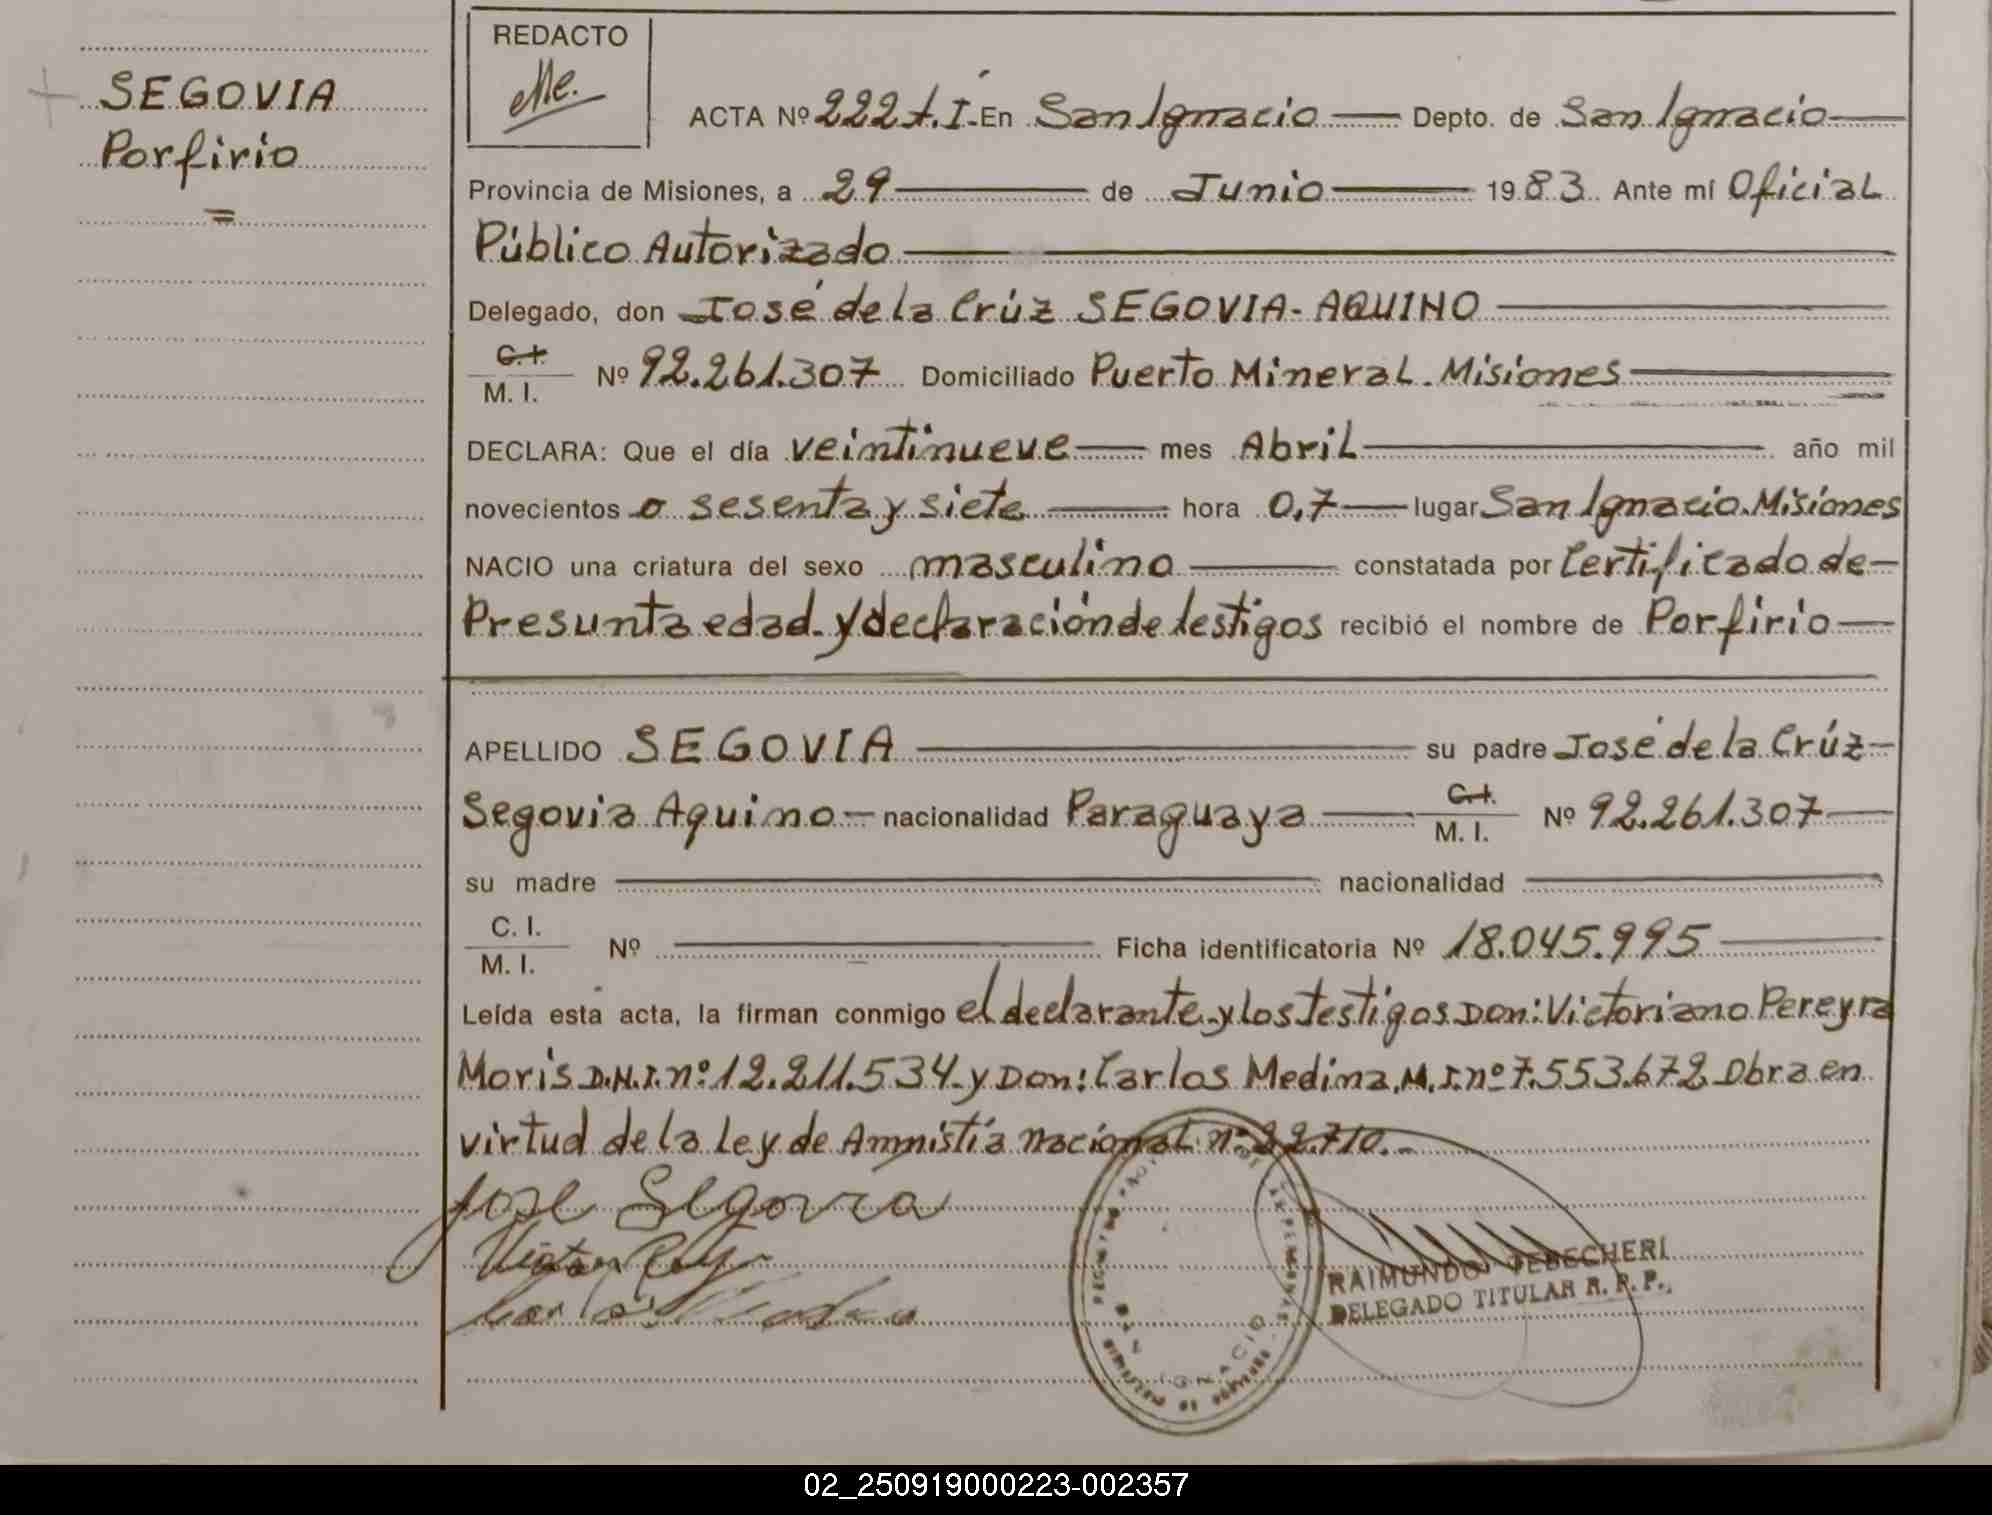 SEGOVIA
Porfirio
=
REDACTO
ACTA Nº 222 t.I- En San Ignacio — Depto. de San Ignacio —
Provincia de Misiones, a 29 — de Junio — 1983. Ante mí Oficial
Público Autorizado —
Delegado, don José de la Crúz SEGOVIA - AQUINO —
C. I.
M. I. Nº 92.261.307 Domiciliado Puerto Mineral. Misiones —
DECLARA: Que el día veintinueve — mes Abril — año mil
novecientos o sesenta y siete — hora 0,7 — lugar San Ignacio. Misiones
NACIO una criatura del sexo masculino — constatada por Certificado de —
Presunta edad. y declaración de testigos recibió el nombre de Porfirio —
APELLIDO SEGOVIA — su padre José de la Crúz —
Segovia Aquino — nacionalidad Paraguaya — C. I.
M. I. Nº 92.261.307 —
su madre — nacionalidad —
C. I.
M. I. Nº — Ficha identificatoria Nº 18.045.995 —
Leída esta acta, la firman conmigo el declarante y los testigos Don: Victoriano Pereyra
Moris D.N.I. nº: 12.211.534. y Don: Carlos Medina, M. I. nº 7.553.672 Obra en
virtud de la Ley de Amnistía nacional. nº 22.710.-
Jose Segovia
SAN IGNACIO
RAIMUNDO TEBECHERI
DELEGADO TITULAR R. P. P.
02_250919000223-002357